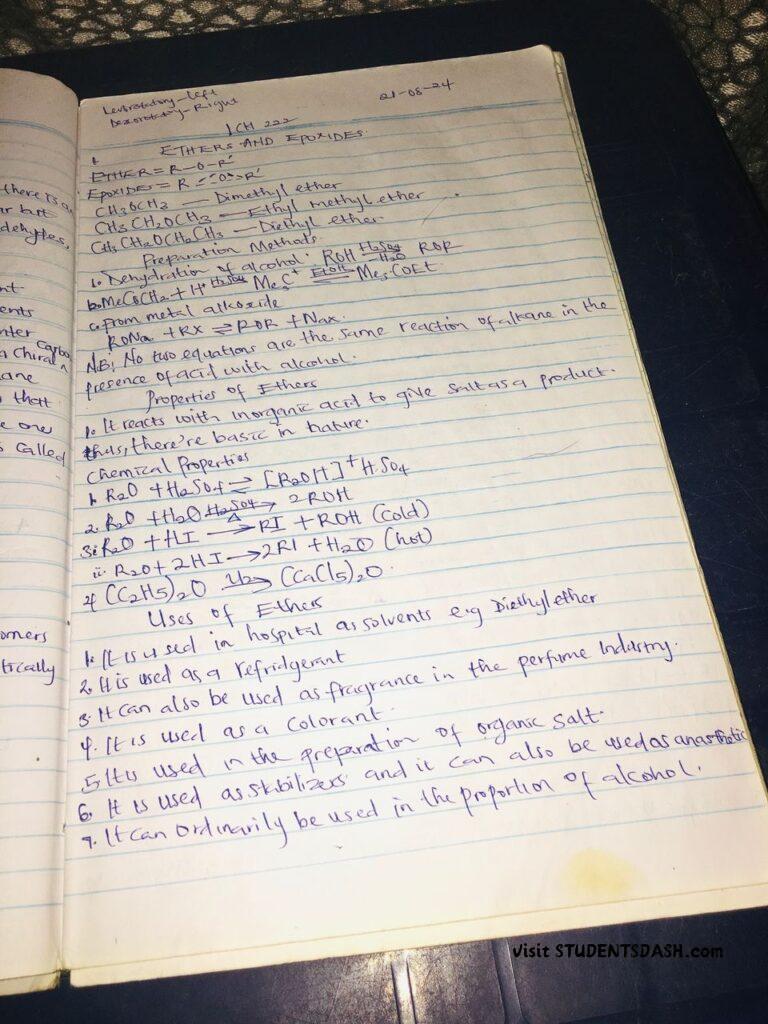 Levorotatory - left
Dexorotatory - Right
21-08-24
ICH 222
ETHERS AND EPOXIDES
ETHER = R-O-R'
EPOXIDES = R
CH3OCH3 — Dimethyl ether
CH3CH2OCH3 — Ethyl methyl ether
CH3CH2OCH2CH3 — Diethyl ether
Preparation Methods
Dehydration of alcohol: ROH H2SO4 H2O ROR
b. + H+ Me3C+ EtOH ⇌ Me3COEt
c. from metal alkoxide
RONa + RX ⇌ ROR + Nax.
NB; No two equations are the same reaction of alkane in the
presence of acid with alcohol.
Properties of Ethers
1. It reacts with inorganic acid to give salt as a product.
thus, there're basic in nature.
Chemical Properties
1. R2O + H2SO4 ⇌ [R2OH]+ HSO4
2. R2O + H2O H2SO4 → 2ROH
3i. R2O + HI → RI + ROH (cold)
ii. R2O + 2HI → 2RI + H2O (hot)
4 (C2H5)2O → (C2Cl5)2O.
Uses of Ethers
1. It is used in hospital as solvents e.g Diethyl ether
2. It is used as a refridgerant
3. It can also be used as fragrance in the perfume Industry.
4. It is used as a colorant.
5. It is used in the preparation of organic salt.
6. It is used as stabilizers and it can also be used as
7. It can ordinarily be used in the proportion of alcohol.
there is a
dehydes,
ents
Carbo
a chiral
ane
that
one
called
omers
tically
Visit STUDENTSDASH.com